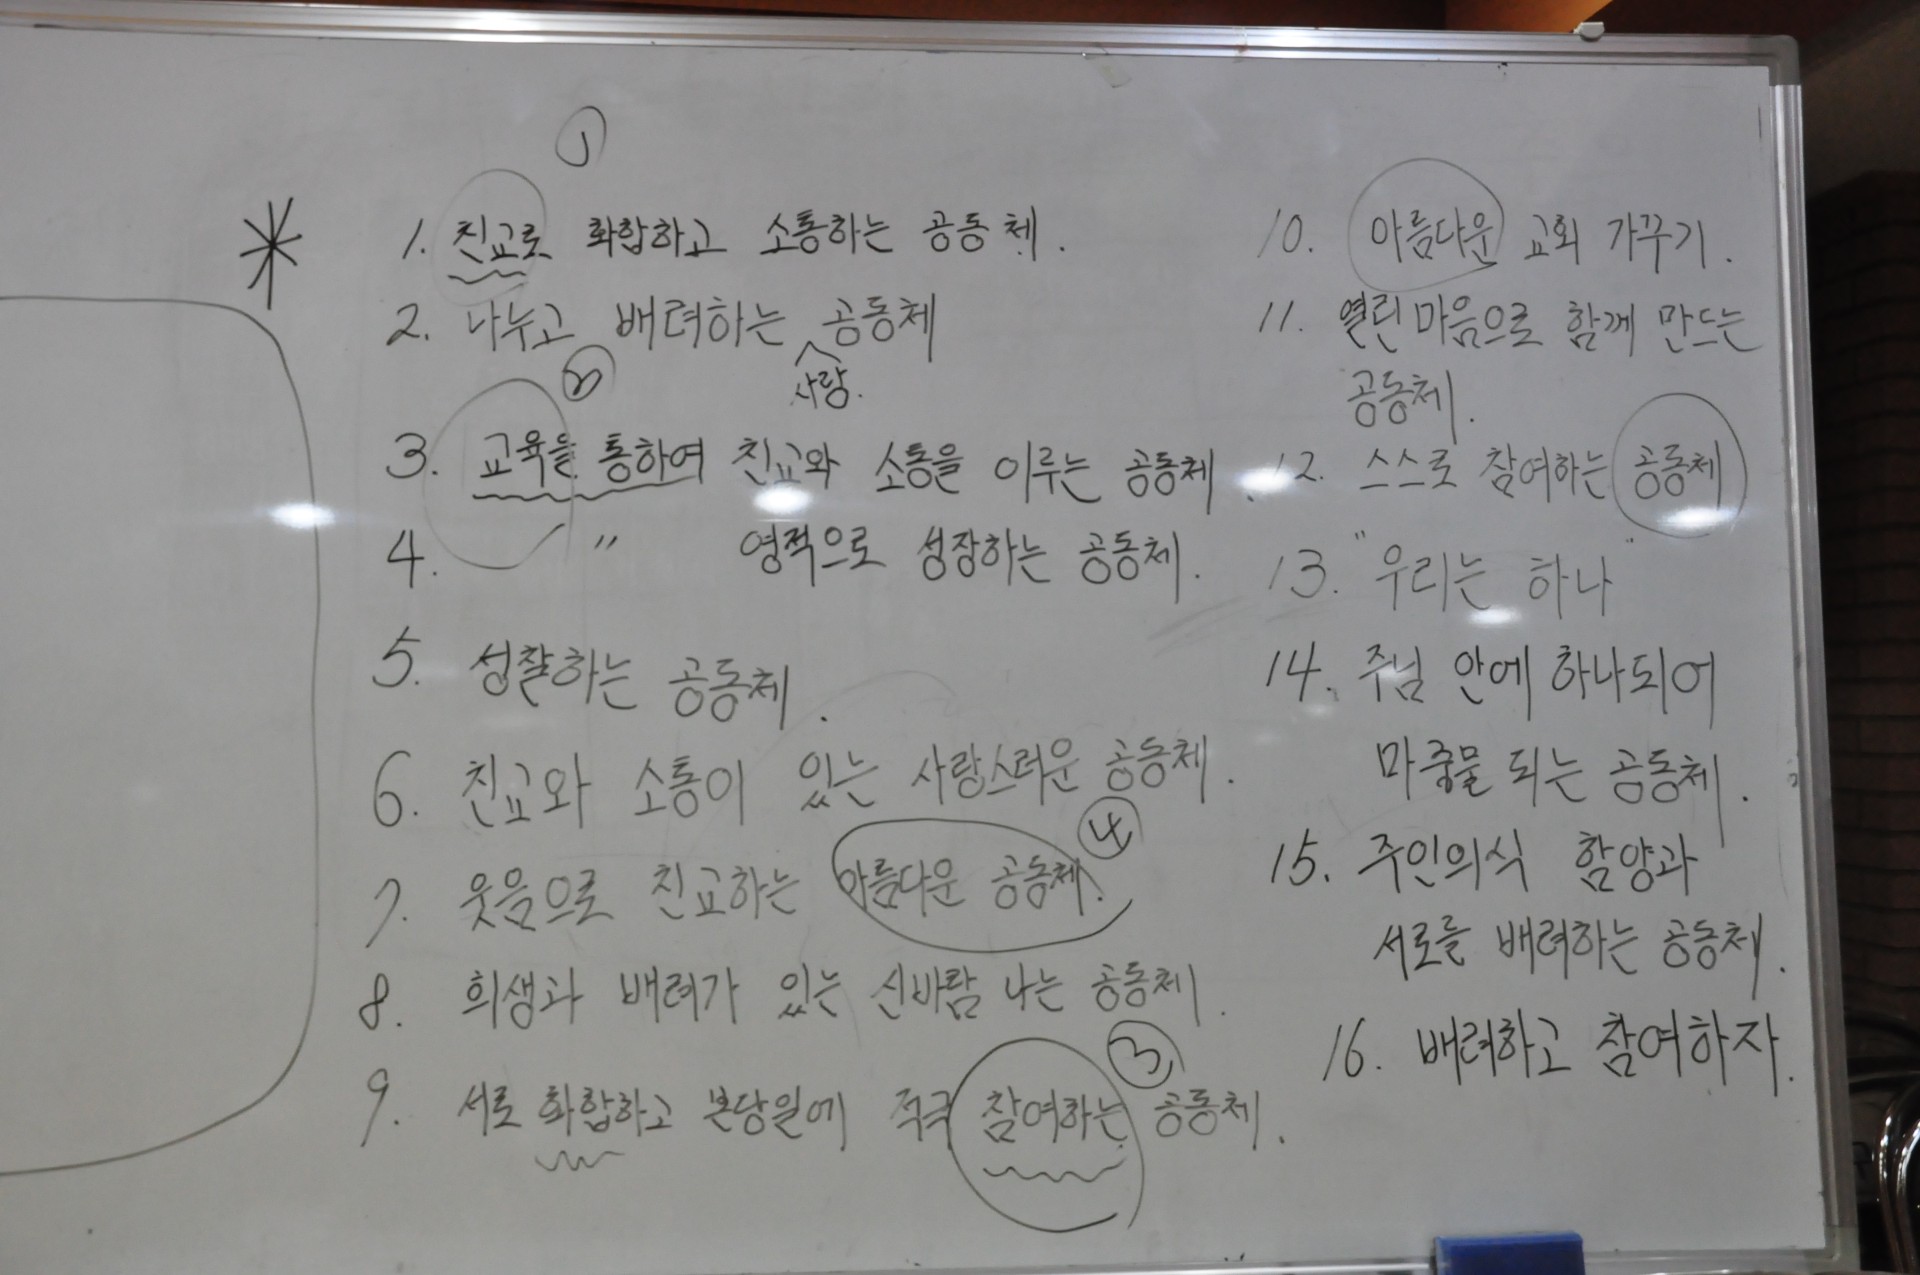 ①
1. 친교로 화합하고 소통하는 공동체.
2. 나누고 배려하는 공동체
사랑.
②
3. 교육을 통하여 친교와 소통을 이루는 공동체.
4. 〃 영적으로 성장하는 공동체.
5. 성찰하는 공동체.
6. 친교와 소통이 있는 사랑스러운 공동체.
④
7. 웃음으로 친교하는 아름다운 공동체.
8. 희생과 배려가 있는 신바람 나는 공동체.
③
9. 서로 화합하고 본당일에 적극 참여하는 공동체.
10. 아름다운 교회 가꾸기.
11. 열린 마음으로 함께 만드는
공동체.
12. 스스로 참여하는 공동체
13. "우리는 하나"
14. 주님 안에 하나되어
마중물 되는 공동체.
15. 주인의식 함양과
서로를 배려하는 공동체.
16. 배려하고 참여하자.